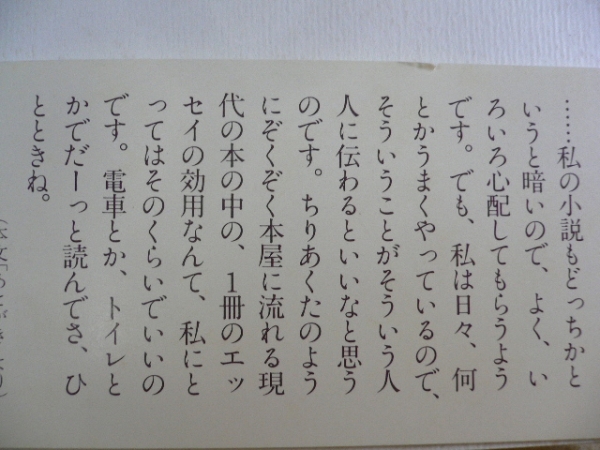 ……私の小説もどっちかと
いうと暗いので、よく、い
ろいろ心配してもらうよう
です。でも、私は日々、何
とかうまくやっているので、
そういうことがそういう人
人に伝わるといいなと思う
のです。ちりあくたのよう
にぞくぞく本屋に流れる現
代の本の中の、1冊のエッ
セイの効用なんて、私にと
ってはそのくらいでいいの
です。電車とか、トイレと
かでだーっと読んでさ、ひ
とときね。